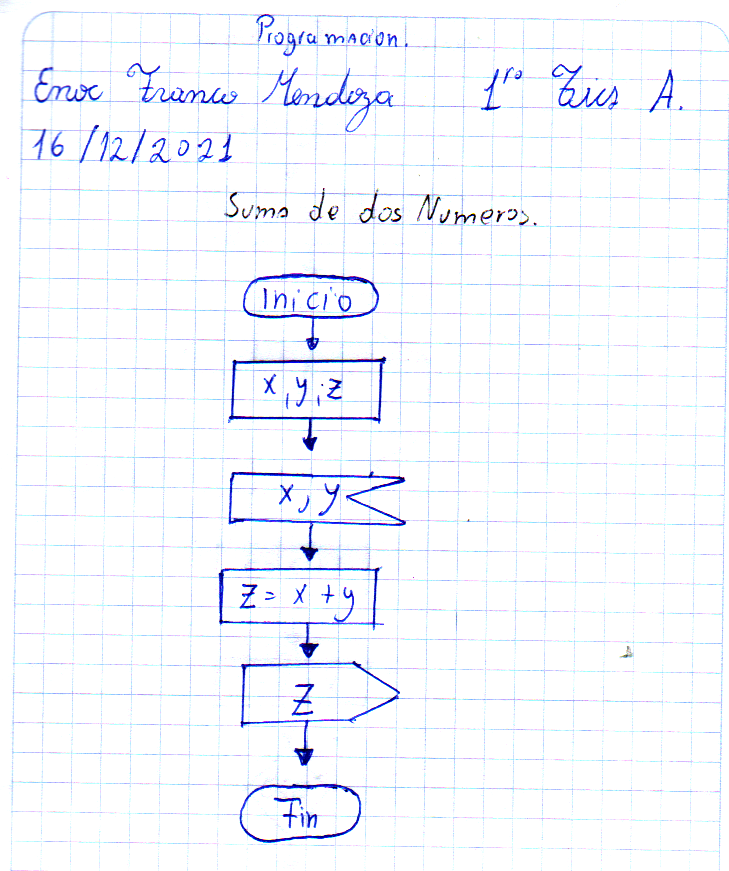 Programacion.
Enoc Franco Mendoza 1ro Tics A.
16/12/2021
Suma de dos Numeros.
Inicio
x, y, z
x, y
z = x + y
z
Fin